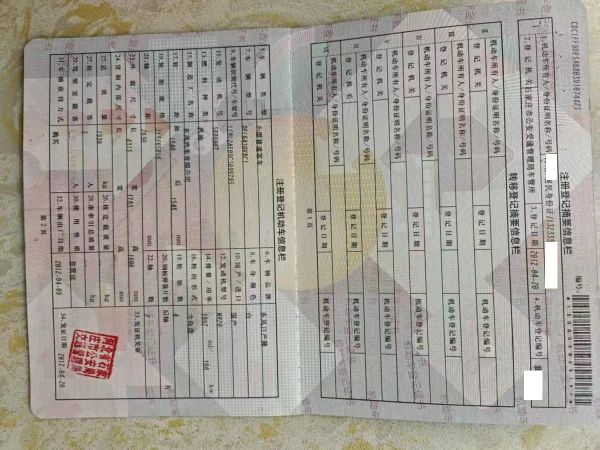 CDC1FF9DE548BB391074AE1
注册登记摘要信息栏
编号:
1.机动车所有人/身份证明名称/号码
居民身份证/132335
2.登记机关 石家庄市公安交通管理局车管所
3.登记日期 2012-04-20
4.机动车登记编号
转移登记摘要信息栏
机动车所有人/身份证明名称/号码
登记机关 登记日期 机动车登记编号
机动车所有人/身份证明名称/号码
登记机关 登记日期 机动车登记编号
机动车所有人/身份证明名称/号码
登记机关 登记日期 机动车登记编号
机动车所有人/身份证明名称/号码
登记机关 登记日期 机动车登记编号
机动车所有人/身份证明名称/号码
登记机关 登记日期 机动车登记编号
机动车所有人/身份证明名称/号码
登记机关 登记日期 机动车登记编号
第1页
注册登记机动车信息栏
5.车辆类型 小型普通客车
6.车辆品牌 东风日产牌
7.车辆型号
8.车身颜色 白
9.车辆识别代号/车架号
10.国产/进口 国产
11.发动机号
12.发动机型号 MR20
13.燃料种类 汽油
14.排量/功率 1997 ml/ kw
15.制造厂名称 东风汽车有限公司
16.转向形式 方向盘
17.轮距 前 1540 后 1545 mm
18.轮胎数 4
19.轮胎规格
20.钢板弹簧片数 后轴 片
21.轴距 mm
22.轴数 2
23.外廓尺寸 长 宽 1785 高 mm
33.发证机关章
24.货厢内部尺寸 长 宽 高 mm
25.总质量 kg
26.核定载质量 kg
27.核定载客 5 人
28.准牵引总质量 kg
29.驾驶室载客 人
30.使用性质 非营运
31.车辆获得方式 购买
32.车辆出厂日期 2012-04-09
34.发证日期 2012-04-20
第2页